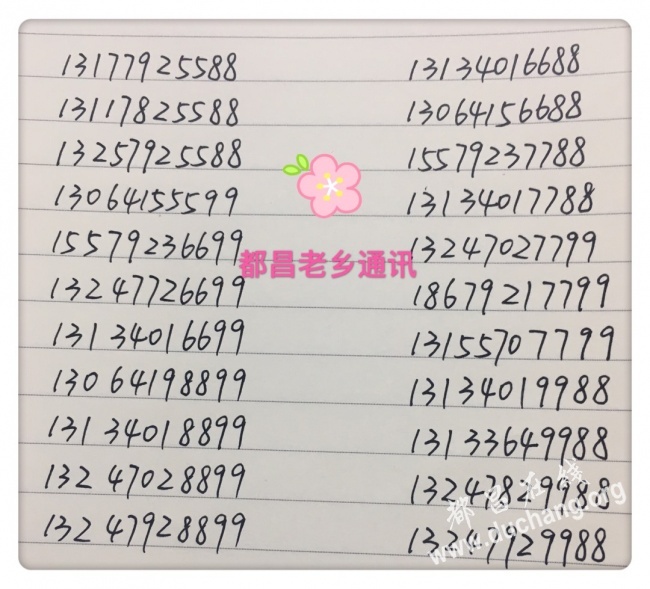 13177925588
13117825588
13257925588
13064155599
15579236699
13247726699
13134016699
13064198899
13134018899
13247028899
13247928899
13134016688
13064156688
15579237788
13134017788
13247027799
18679217799
13155707799
13134019988
13133649988
13247829988
13247929988
都昌老乡通讯
都昌在线
www.duchang.org